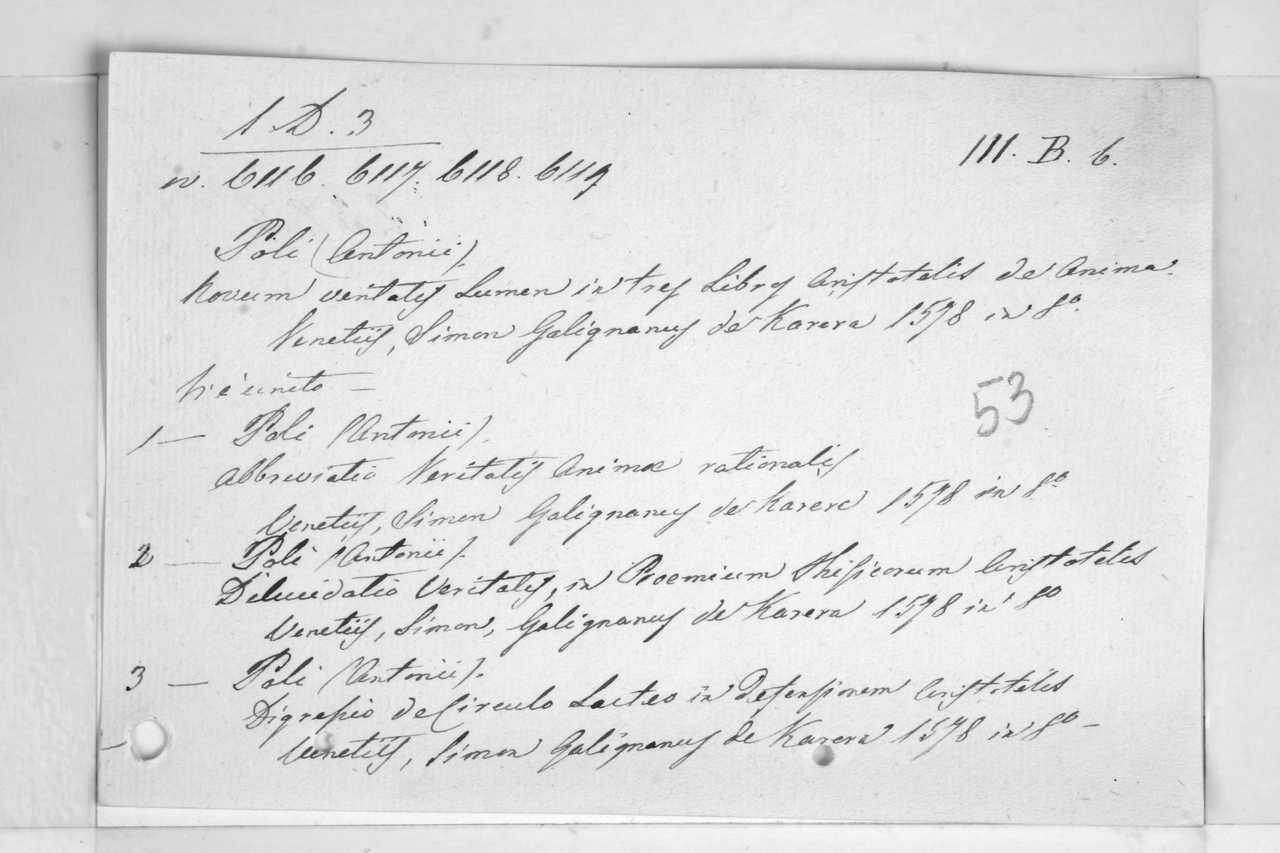 1 D. 3
III. B. 6.
n. 6116. 6117. 6118. 6119
Poli (Antonii).
Novum veritatis Lumen in tres Libros Aristotelis de Anima.
Venetiis, Simon Galignanus de Karera 1578 in 8º.
Vi è unito —
53
1 — Poli (Antonii).
Abbreviatio Veritatis Animæ rationalis
Venetiis, Simon Galignanus de Karere 1578 in 8º
2 — Poli (Antonii).
Dilucidatio Veritatis, in Proemium Phisicorum Aristotelis
Venetiis, Simon, Galignanus de Karera 1578 in 8º
3 — Poli (Antonii).
Digressio de Circulo Lacteo in Defensionem Aristotelis
Venetiis, Simon Galignanus de Karera 1578 in 8º —